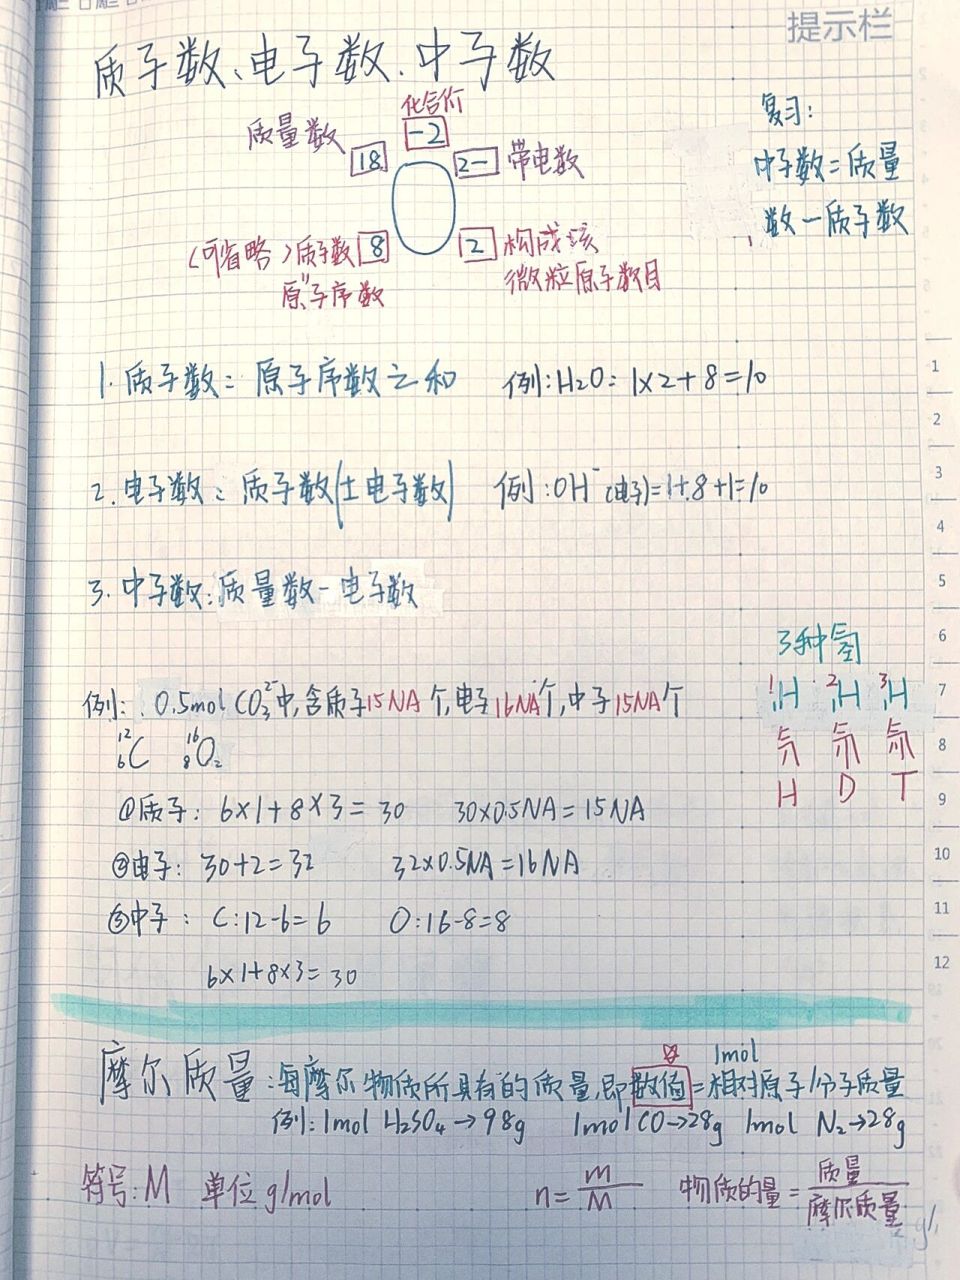 提示栏
质子数、电子数、中子数
化合价
质量数 18 -2 2- 带电数
(可省略)质子数 8 2 构成该
"
原子序数 微粒原子数目
复习:
中子数=质量
数-质子数
1.质子数:原子序数之和 例:H₂O:1×2+8=10
2.电子数:质子数(±电子数) 例:OH⁻(电子)=1+8+1=10
3.中子数:质量数-电子数
3种氢
¹₁H ²₁H ³₁H
氕 氘 氚
H D T
例:0.5mol CO₃²⁻中,含质子15NA个,电子16NA个,中子15NA个
¹²₆C ¹⁶₈O₂
①质子:6×1+8×3=30 30×0.5NA=15NA
②电子:30+2=32 32×0.5NA=16NA
③中子:C:12-6=6 O:16-8=8
6×1+8×3=30
1
2
3
4
5
6
7
8
9
10
11
12
1mol
摩尔质量:每摩尔物质所具有的质量,即数值=相对原子/分子质量
例:1mol H₂SO₄→98g 1mol CO→28g 1mol N₂→28g
符号:M 单位g/mol n=m/M 物质的量=质量/摩尔质量